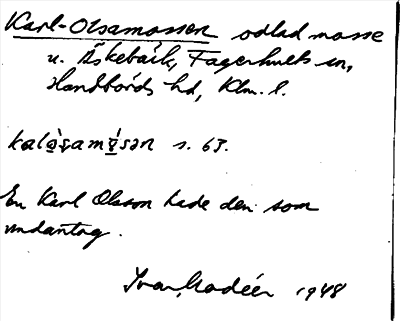 Karl-Olsamossen odlad mosse
u. Äskebäck, Fagerhults sn,
Handbörds hd, Klm. l.
kalòsamåsən s. 63.
En Karl Olsson hade den som
undantag.
Ivar Modéer 1948